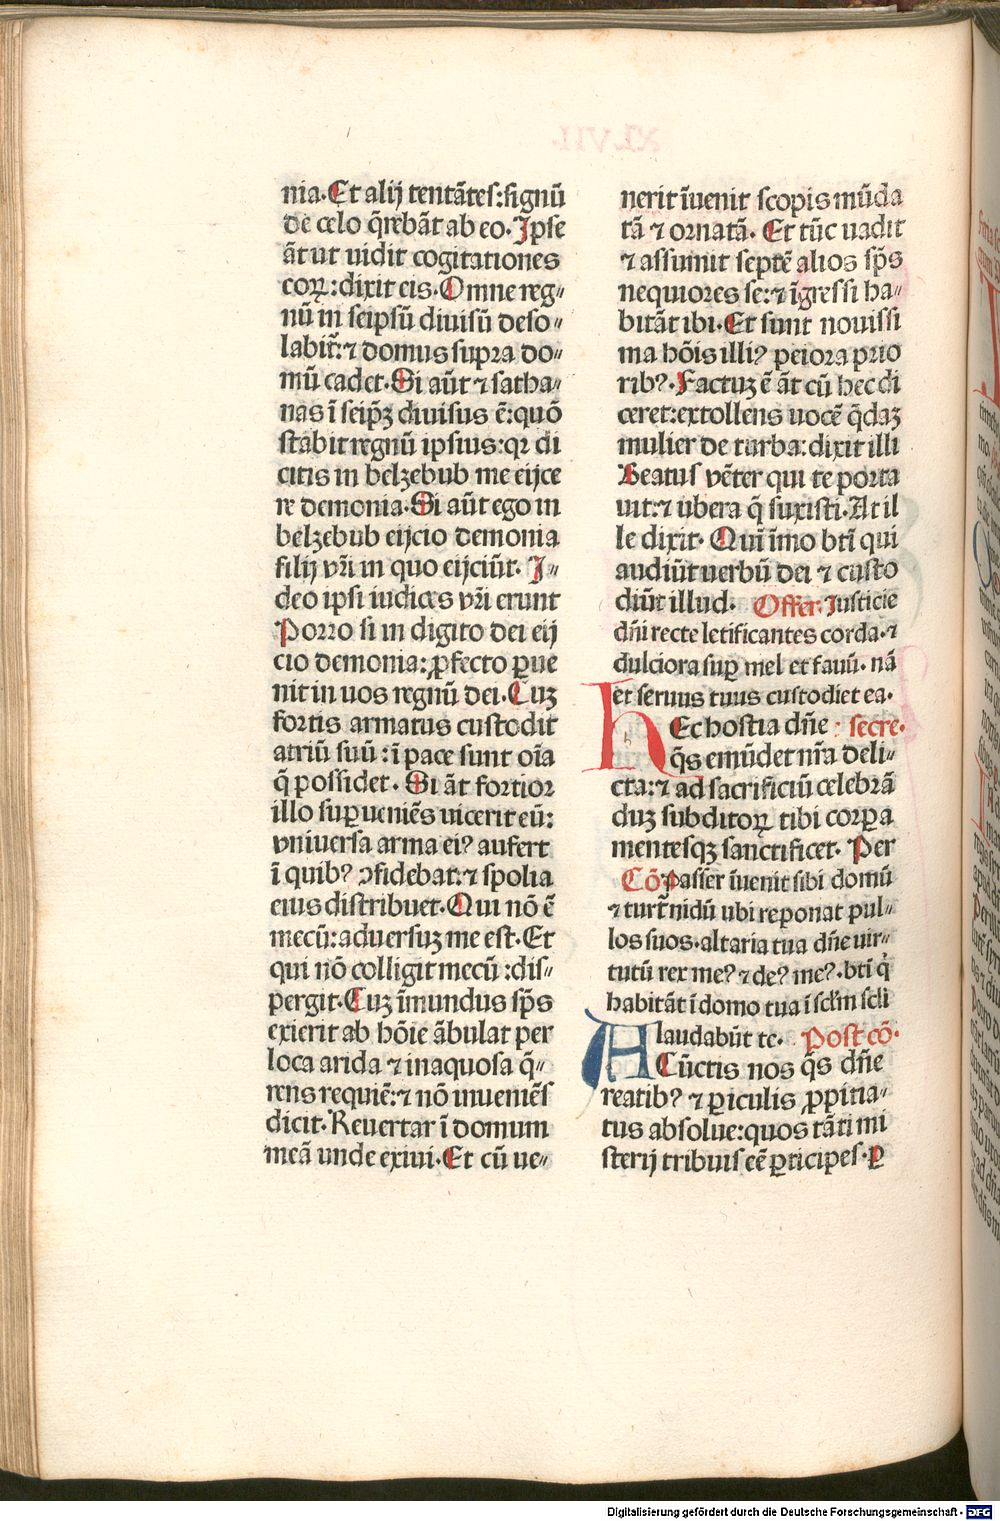 nia. Et alij tentātes: signū
de celo q̄rebāt ab eo. Ipse
āt ut uidit cogitationes
coꝝ: dixit eis. Omne reg⸗
nū in seipsū diuisū deso⸗
labit᷑: ⁊ domus supra do⸗
mū cadet. Si aūt ⁊ satha⸗
nas ī seip̄ꝫ diuisus ē: quō
stabit regnū ipsius: qꝛ di
citis in belzebub me eijce
re demonia. Si aūt ego in
belzebub eijcio demonia
filij vr̄i in quo eijciūt. I⸗
deo ipsi iudices vr̄i erunt
Porro si in digito dei eij
cio demonia: ꝓfecto ꝑue
nit in uos regnū dei. Cuꝫ
fortis armatus custodit
atriū suū: ī pace sunt oīa
q̄ possidet. Si āt fortior
illo suꝑueniēs vicerit eū:
vniuersa arma eiꝰ aufert
ī quibꝰ ꝯfidebat: ⁊ spolia
eius distribuet. Qui nō ē
mecū: aduersuꝫ me est. Et
qui nō colligit mecū: dis⸗
pergit. Cuꝫ īmundus sp̄s
exierit ab hōie ābulat per
loca arida ⁊ inaquosa q̄⸗
rens requiē: ⁊ nō inueniēs
dicit. Reuertar ī domum
meā unde exiui. Et cū ue⸗
nerit īuenit scopis mūda
tā ⁊ ornatā. Et tūc uadit
⁊ assumit septē alios sp̄s
nequiores se: ⁊ īgressi ha⸗
bitāt ibi. Et sunt nouissi
ma hōis illiꝰ peiora prio
ribꝰ. Factuꝫ ē āt cū hec di
ceret: extollens uocē q̄daꝫ
mulier de turba: dixit illi
Beatus vēter qui te porta
uit: ⁊ ubera q̄ suxisti. At il
le dixit. Quīīmo bt̄i qui
audiūt uerbū dei ⁊ custo
diūt illud. Offer. Iusticie
dn̄i recte letificantes corda. ⁊
dulciora suꝑ mel et fauū. nā
et seruus tuus custodiet ea.
HEc hostia dn̄e secre.
q̄s emūdet nr̄a deli⸗
cta: ⁊ ad sacrificiū celebrā
duꝫ subditoꝝ tibi corꝑa
mentesqꝫ sanctificet. Per
Cō Passer īuenit sibi domū
⁊ turt᷑ nidū ubi reponat pul⸗
los suos. altaria tua dn̄e uir⸗
tutū rex meꝰ ⁊ deꝰ meꝰ. bt̄i q̇
habitāt ī domo tua ī sclm̄ scli
laudabūt te. Post cō.
A Cūctis nos q̄s dn̄e
reatibꝰ ⁊ ꝑiculis ꝓpitia⸗
tus absolue: quos tāti mi
sterij tribuis eē ꝑticipes. ꝑ
Digitalisierung gefördert durch die Deutsche Forschungsgemeinschaft - DFG